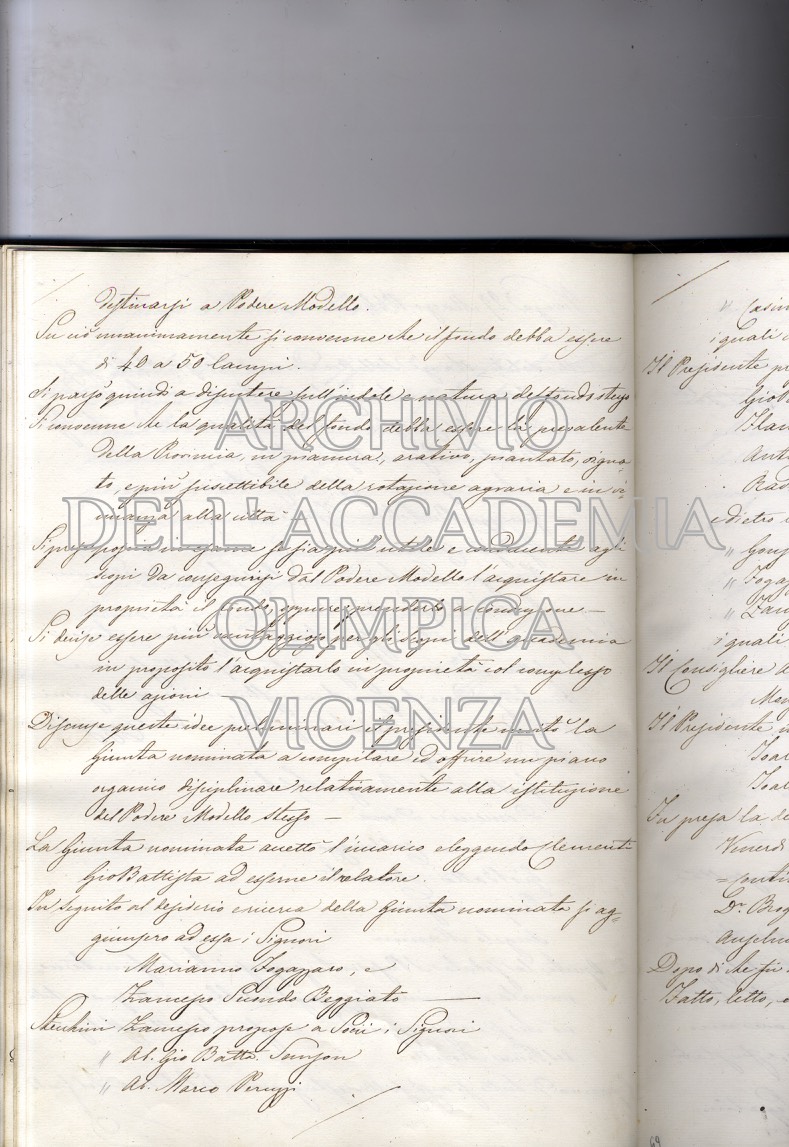 destinarsi a Podere Modello.
Su ciò unanimamente si convenne che il fondo debba essere
di 40 a 50 Campi.
Si passò quindi a discutere sull'indole e natura del fondo stesso
Si convenne che la qualità del fondo debba essere la prevalente
della Provincia, in pianura, arativo, piantato, vigna-
to e più suscettibile della rotazione agraria e in vi-
cinanza alla città
Si propose se sia più utile e conducente agli
scopi da conseguirsi dal Podere Modello l'acquistare in
proprietà il fondo, oppure prenderlo a conduzione —
Si decise essere più vantaggioso per gli scopi dell'accademia
in proposito l'acquistarlo in proprietà col complesso
delle azioni —
Discusse queste idee preliminari il presidente invitò la
Giunta nominata a compilare ed offrire un piano
organico disciplinare relativamente alla istituzione
del Podere Modello stesso —
La Giunta nominata accettò l'incarico eleggendo Clementi
Gio Battista ad esserne il relatore.
In seguito al desiderio e ricerca della Giunta nominata si ag=
giunsero ad essa i Signori
Marianno Fogazzaro, e
Zamesso Secondo Beggiato —
Stecchini Zamesso propose a Socii i Signori
" Ab. Gio Batta
" Ab. Marco Peruzzi
" 
i quali
Il Presidente
e dietro
"
"
"
i quali
Il Consigliere
Il Presidente
In presa la
Venerdì
Dr.
Dopo di che fu
Fatto, letto,
69
ARCHIVIO
DELL'ACCADEMIA
OLIMPICA
VICENZA